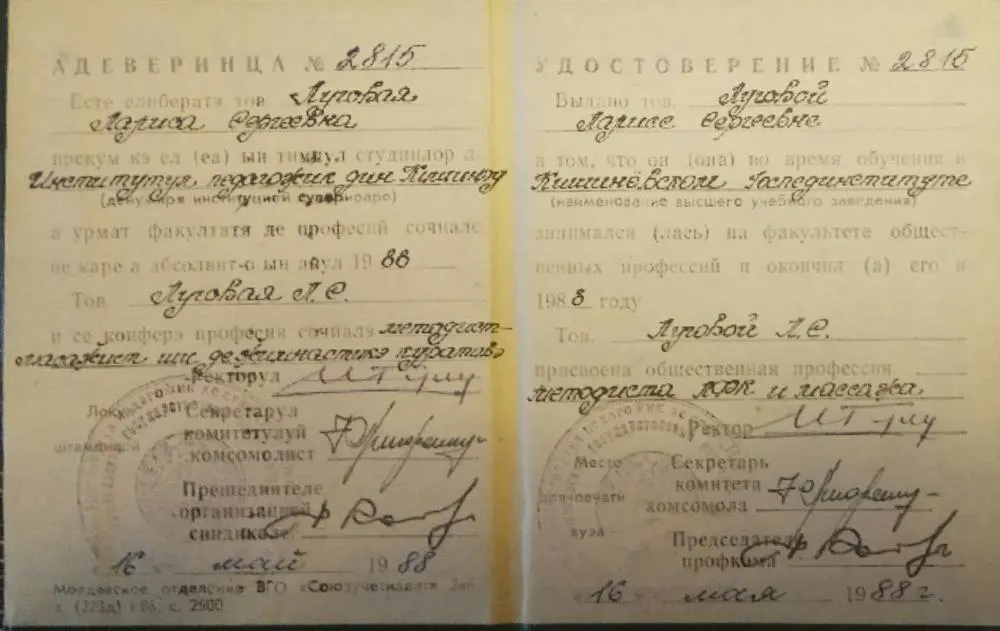 АДЕВЕРИНЦА № 2815
Есте елибератэ тов. Луговая
Лариса Сергеевна
прекум кэ ел (еа) ын тимпул студиилор ла
Институтул педагожик дин Кишинэу
(денумиря институцией супериоаре)
а урмат факултатя де професий сочиале
пе каре а абсолвит-о ын анул 1988
Тов. Луговая Л.С.
и се конферэ професия сочиалэ методист-
масажист ши де жимнастикэ куративэ
Ректорул
Локул
штемпелей
Секретарул
комитетулуй
комсомолист
Прешединтеле
организацией
синдикале
16 май 1988
Молдавское отделение ВГО «Союзучетиздат»
з. (223д) т 86, с. 2500
УДОСТОВЕРЕНИЕ № 2815
Выдано тов. Луговой
Ларисе Сергеевне
в том, что он (она) во время обучения в
Кишинёвском Госпединституте
(наименование высшего учебного заведения)
занимался (лась) на факультете общест-
венных профессий и окончил (а) его в
1988 году
Тов. Луговой Л.С.
присвоена общественная профессия
методиста ЛФК и массажа
Ректор
Место
для печати
вуза
Секретарь
комитета
комсомола
Председатель
профкома
«16» мая 1988 г.